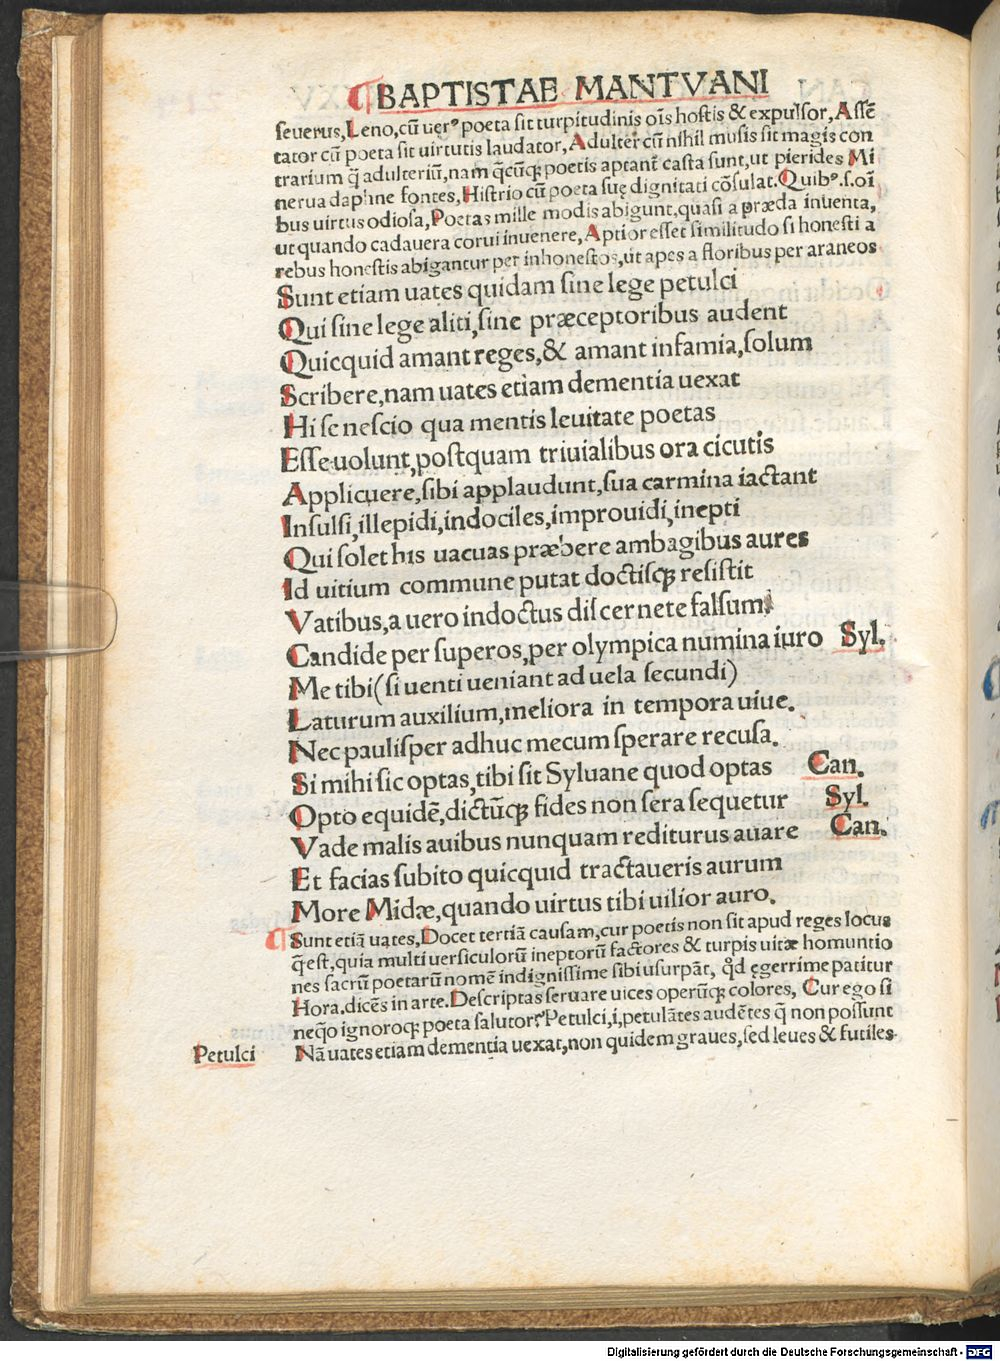 BAPTISTAE MANTVANI
seuerus, Leno, cũ uerꝰ poeta sit turpitudinis oĩs hostis & expulsor, Assẽ
tator cũ poeta sit uirtutis laudator, Adulter cũ nihil musis sit magis con
trarium q̃ adulteriũ, nam q̃cũqꝫ poetis aptant̃ casta sunt, ut pierides Mi
nerua daphne fontes, Histrio cũ poeta suę dignitati cõsulat. Quibꝰ.s.oĩ
bus uirtus odiosa, Poetas mille modis abigunt, quasi a præda inuenta,
ut quando cadauera corui inuenere, Aptior esset similitudo si honesti a
rebus honestis abigantur per inhonestos, ut apes a floribus per araneos
Sunt etiam uates quidam sine lege petulci
Qui sine lege aliti, sine præceptoribus audent
Quicquid amant reges, & amant infamia, solum
Scribere, nam uates etiam dementia uexat
Hi se nescio qua mentis leuitate poetas
Esse uolunt, postquam triuialibus ora cicutis
Applicuere, sibi applaudunt, sua carmina iactant
Insulsi, illepidi, indociles, improuidi, inepti
Qui solet his uacuas præbere ambagibus aures
Id uitium commune putat doctisqꝫ resistit
Vatibus, a uero indoctus discernete falsum.
Candide per superos, per olympica numina iuro Syl.
Me tibi (si uenti ueniant ad uela secundi)
Laturum auxilium, meliora in tempora uiue.
Nec paulisper adhuc mecum sperare recusa.
Si mihi sic optas, tibi sit Syluane quod optas Can.
Opto equidẽ, dictũqꝫ fides non sera sequetur Syl.
Vade malis auibus nunquam rediturus auare Can.
Et facias subito quicquid tractaueris aurum
More Midæ, quando uirtus tibi uilior auro.
Sunt etiã uates, Docet tertiã causam, cur poetis non sit apud reges locus
q̃ est, quia multi uersiculorũ ineptorũ factores & turpis uitæ homuntio
nes sacrũ poetarũ nomẽ indignissime sibi usurpãt, qd̃ ęgerrime patitur
Hora. dicẽs in arte. Descriptas seruare uices operũqꝫ colores, Cur ego si
neq̃o ignoroqꝫ poeta salutor? Petulci, i, petulãtes audẽtes q̃ non possunt
Petulci Nã uates etiam dementia uexat, non quidem graues, sed leues & futiles
Digitalisierung gefördert durch die Deutsche Forschungsgemeinschaft - DFG